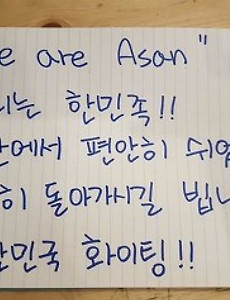 e are Asan"
리는 한민족!!
에서 편안히 쉬
히 돌아가시길 빕니
한민국 화이팅!!